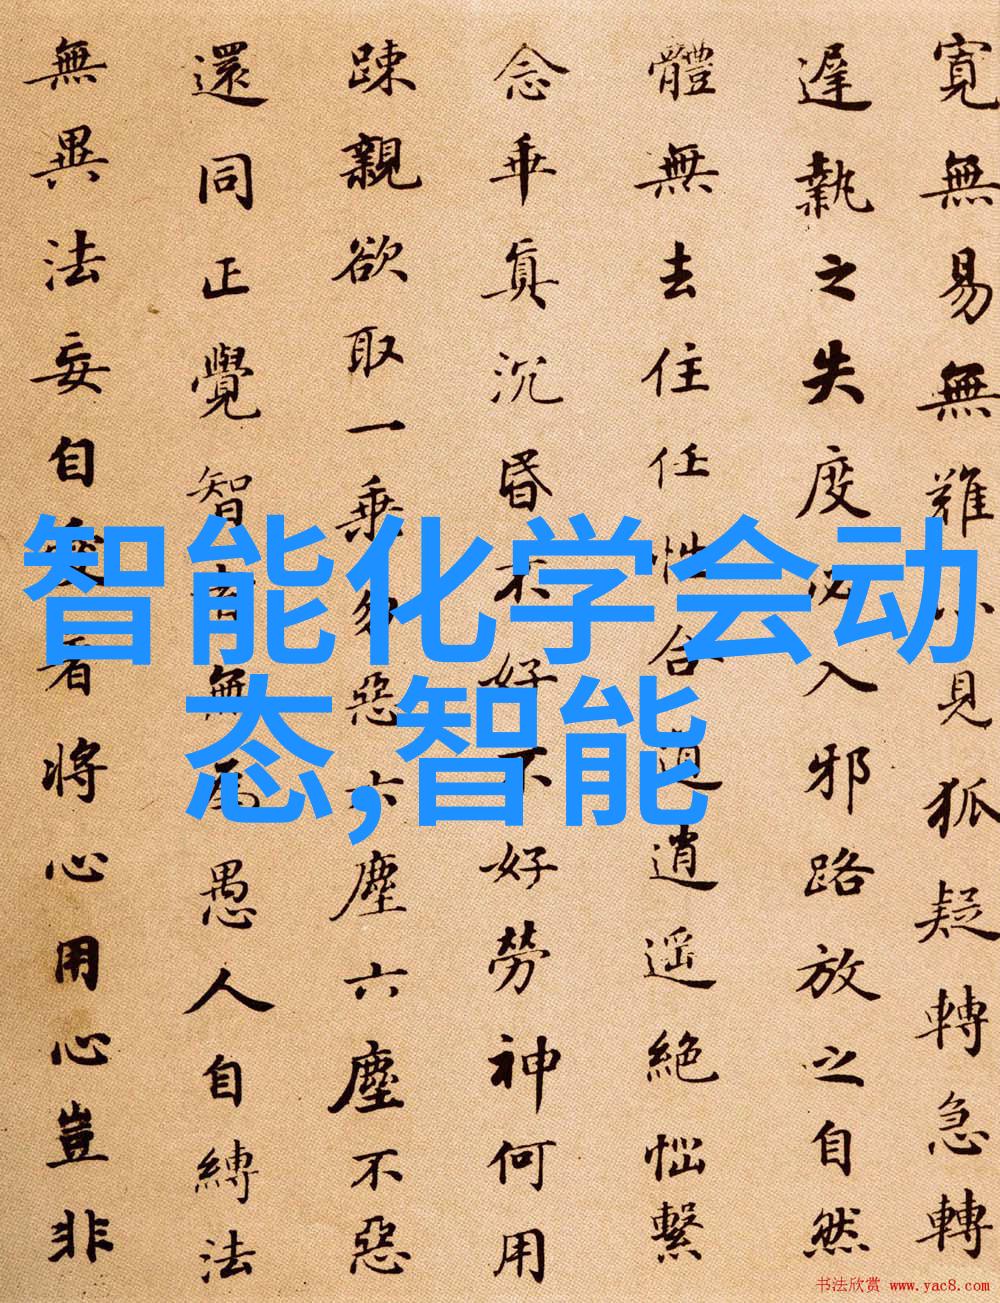 寬無易無難小見狐疑轉急轉
遲執之失度必入邪路放之自然
體無去住任性合道逍遥絶惱繫
念乖真沉昏不好不好勞神何用
踈親欲取一乘勿惡六塵六塵不惡
還同正覺智者無為愚人自縛法
無異法妄自愛著将心用心豈非
智能化学会动
态,智能
书法欣赏 www.yac8.com